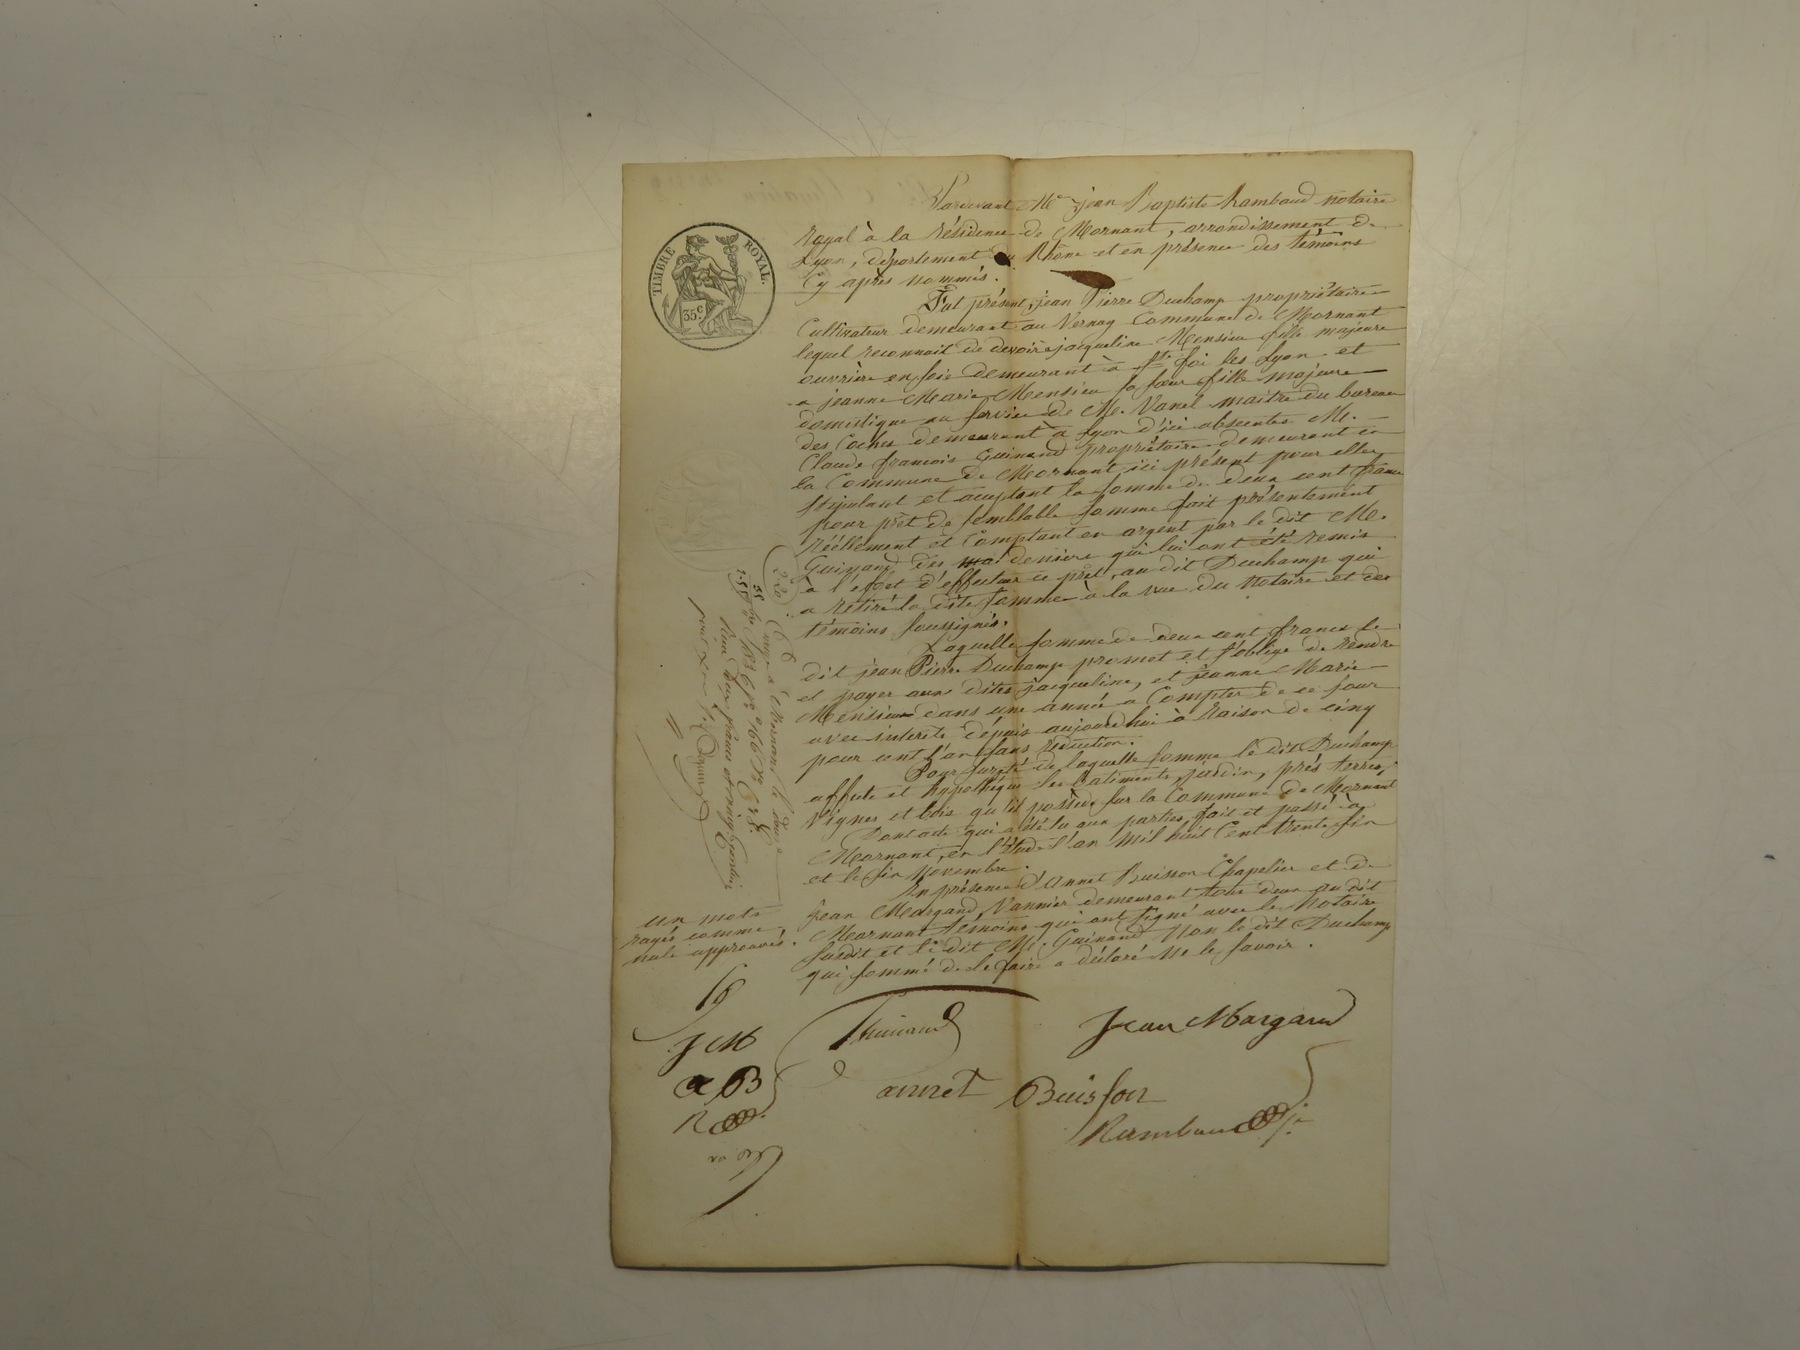 TIMBRE ROYAL.
35.c
Pardevant Me jean Baptiste Rambaud notaire
royal à la résidence de Mornant, arrondissement de
Lyon, département du Rhône et en présence des témoins
Cy après nommés.
Fut présent, jean Pierre Duchamp propriétaire
Cultivateur demeurant au Vernay Commune de Mornant
lequel reconnoit de devoir a jacqueline Mensieu fille majeure
ouvrière en soie demeurant à Ste foi les Lyon et
a jeanne Marie Mensieu sa sœur fille majeure
domestique au service de M. Vanel maitre du bureau
des Coches demeurant à Lyon d'ici absentes M.
Claude francois Guinand propriétaire demeurant en
la Commune de Mornant, ici présent pour elles
stipulant et acceptant la somme de deux cent francs
pour prêt de semblable somme fait présentement
réellement et Comptant en argent par le dit M.
Guinand des deniers qui lui ont été remis
à l'effet d'effectuer ce prêt, au dit Duchamp qui
a retiré la dite somme à la vue du Notaire et des
témoins soussignés.
Laquelle somme de deux cent francs le
dit jean Pierre Duchamp promet et s'oblige de rendre
et payer aux dites jacqueline, et jeanne Marie
Mensieu dans une année a Compter de ce jour
avec interets depuis aujourd'hui à raison de cinq
pour cent l'an sans réduction.
Pour sureté de laquelle somme le dit Duchamp
affecte et hypothèque les batiments, jardin, prés terres,
Vignes et bois qu'il possède sur la Commune de Mornant
Dont acte qui a été lu aux parties, fait et passé à
Mornant, en l'étude l'an Mil huit Cent trente six
et le six Novembre.
En présence d'Annet Buisson Chapelier et de
Jean Margand, Vannier demeurant tous deux au dit
Mornant témoins qui ont signé avec le Notaire
susdit et le dit M. Guinand Non le dit Duchamp
qui sommé de le faire a déclaré Ne le savoir.
un mots
rayés comme
nuls approuvés.
JM
AB
R
Guinand
Jean Margand
annet Buisson
Rambaud